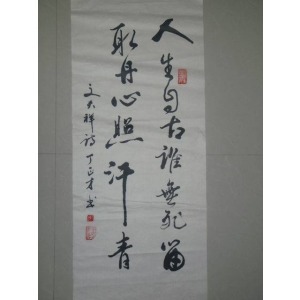 人生自古誰無死留
取丹心照汗青
文天祥詩 丁正才书